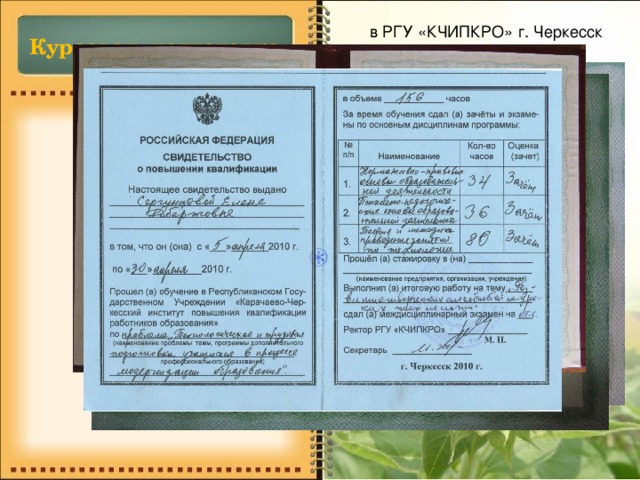 Кур
в РГУ «КЧИПКРО» г. Черкесск
РОССИЙСКАЯ ФЕДЕРАЦИЯ
СВИДЕТЕЛЬСТВО
о повышении квалификации
Настоящее свидетельство выдано
Сергунцовой Елене
в том, что он (она) с «5» апреля 2010 г.
по «30» апреля 2010 г.
Прошел (а) обучение в Республиканском Госу-
дарственном Учреждении «Карачаево-Чер-
кесский институт повышения квалификации
работников образования»
по проблеме „Технологическая и трудовая
(наименование проблемы темы, программы дополнительного
подготовка учащихся в процессе
профессионального образования)
модернизации образования".
в объеме 156 часов
За время обучения сдал (а) зачёты и экзаме-
ны по основным дисциплинам программы:
№ п/п Наименование Кол-во часов Оценка (зачет)
1. Нормативно-правовые основы образователь-ной деятельности 34 Зачёт
2. Психолого-педагогиче-ские основы образова-тельной деятельности 36 Зачёт
3. Теория и методика проведения занятий по технологии 80 Зачёт
Прошёл (а) стажировку в (на)
(наименование предприятия, организации, учреждения)
Выполнил (а) итоговую работу на тему
сдал (а) междисциплинарный экзамен на
Ректор РГУ «КЧИПКРО»
М. П.
Секретарь
г. Черкесск 2010 г.